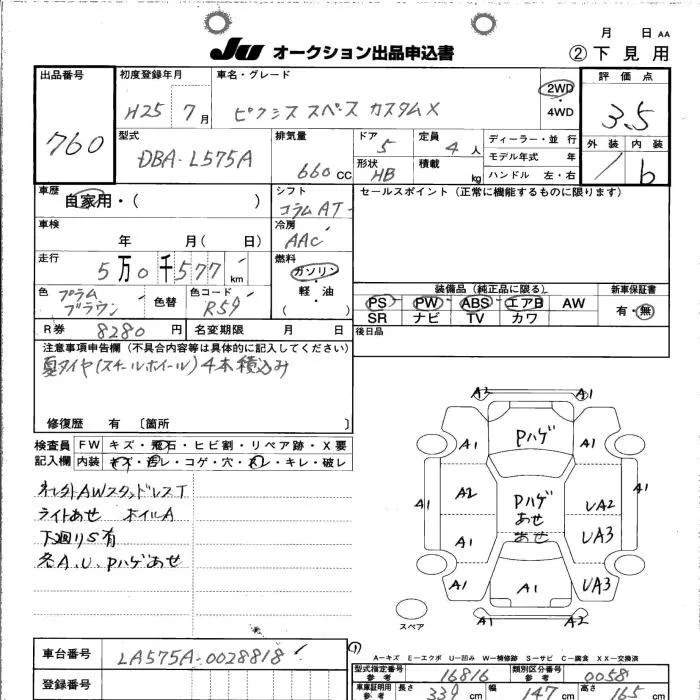 月 日 AA
JU オークション出品申込書 ②下見用
出品番号 初度登録年月 車名・グレード 評価点
760 H25 7月 ピクシス スペース カスタムX 2WD・4WD 3.5
型式 排気量 ドア 定員 ディーラー・並行 外装 内装
DBA-L575A 660cc 5 4人 モデル年式 年 1 b
形状 積載 ハンドル 左・右
HB kg
車歴 自家用・( ) シフト セールスポイント(正常に機能するものに限ります)
コラムAT
車検 冷房
年 月( 日) AAC
走行 燃料
5万0千577km ガソリン・軽・油
( )
装備品(純正品に限る) 新車保証書
色 色替 色コード PS PW ABS エアB AW 有・無
プラムブラウン R59 SR ナビ TV カワ
R券 8280円 名変期限 月 日 後日品
注意事項申告欄(不具合内容等は具体的に記入してください)
夏タイヤ(スチールホイール)4本積込み
修復歴 有 〔箇所 〕
検査員 FW キズ・飛石・ヒビ割・リペア跡・X要
記入欄 内装 キズ・汚レ・コゲ・穴・スレ・キレ・破レ
ネレ外AWスタッドレスT
ライトあせ ホイルA
下廻りS有
各A.U.Pハゲあせ
A2 A1
A1 Pハゲ A1
A1 A2 Pハゲ あせ UA2 A1
A1 あせ UA3
A1 A1 UA3
A2 A2
スペア
A-キズ E-エクボ U-凹み W-補修跡 S-サビ C-腐食 XX-交換済
車台番号 LA575A-0028818
型式指定番号 参考 16816 類別区分番号 参考 0058
登録番号
車庫証明用 参考 長さ 339cm 幅 147cm 高さ 165cm